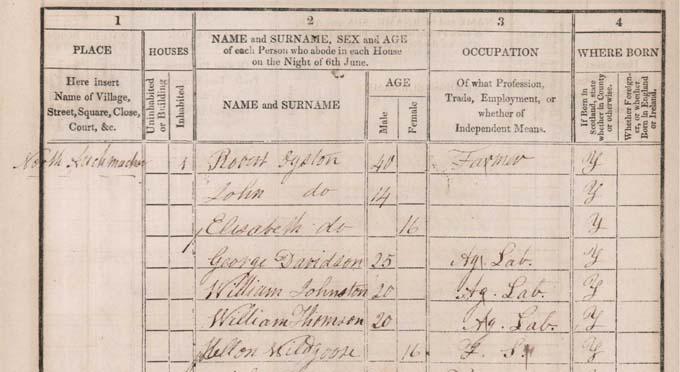 1 2 3 4
PLACE
HOUSES
NAME and SURNAME, SEX and AGE
of each Person who abode in each House
on the Night of 6th June.
OCCUPATION
WHERE BORN
Here insert
Name of Village,
Street, Square, Close,
Court, &c.
Uninhabited
or Building
Inhabited
NAME and SURNAME
AGE
Male
Female
Of what Profession,
Trade, Employment, or
whether of
Independent Means.
If Born in
Scotland, state
whether in County
or otherwise.
Whether Foreign-
er, or whether
Born in England
or Ireland.
North 1 Robert 40 Farmer Y
John do 14 Y
Elisabeth do 16 Y
George Davidson 25 Ag. Lab. Y
William Johnston 20 Ag. Lab. Y
William Thomson 20 Ag. Lab. Y
Wildgoose 16 F. S. Y